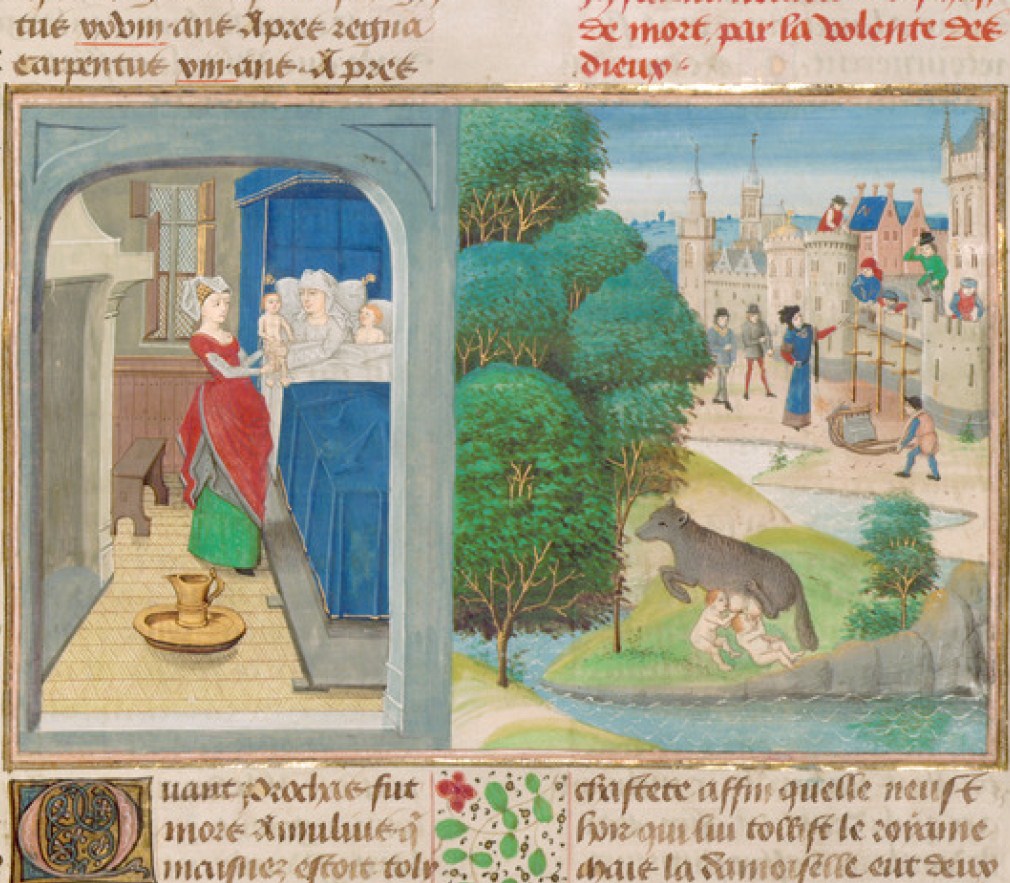 tus ans Apres regna
Carpentus ans Apres
de mort, par la volente des
dieux
Quant Prochas fut
mort Amulius q̃
maisnez estoit
chastete affin quelle neust
hoir qui lui tollist le roiaume
Mais la damoiselle eut deux